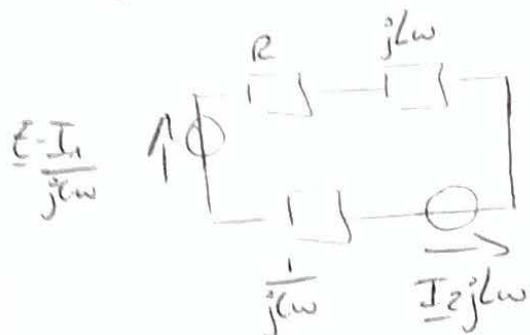 R
jLω
E-I₁
jCω
1
jCω
I₂jLω